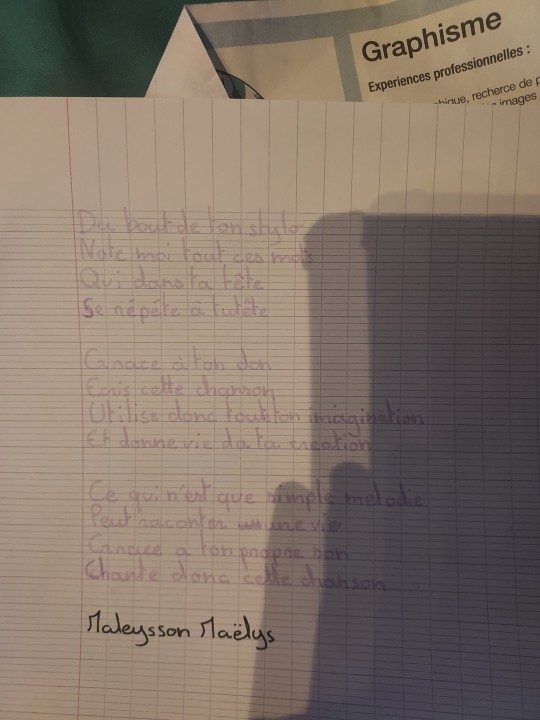 Graphisme
Experiences professionnelles :
hique, recherce de p
images
Du bout de ton stylo
Note moi tout ces mots
Qui dans ta tête
Se répéte à tutête
Grace à ton don
Ecris cette chanson
Utilise donc toute ton imagination
Et donne vie da ta creation
Ce qui n'est que simple melodie
Peut raconter une vie
Grace a ton propre son
Chante donc cette chanson
Maleysson Maëlys